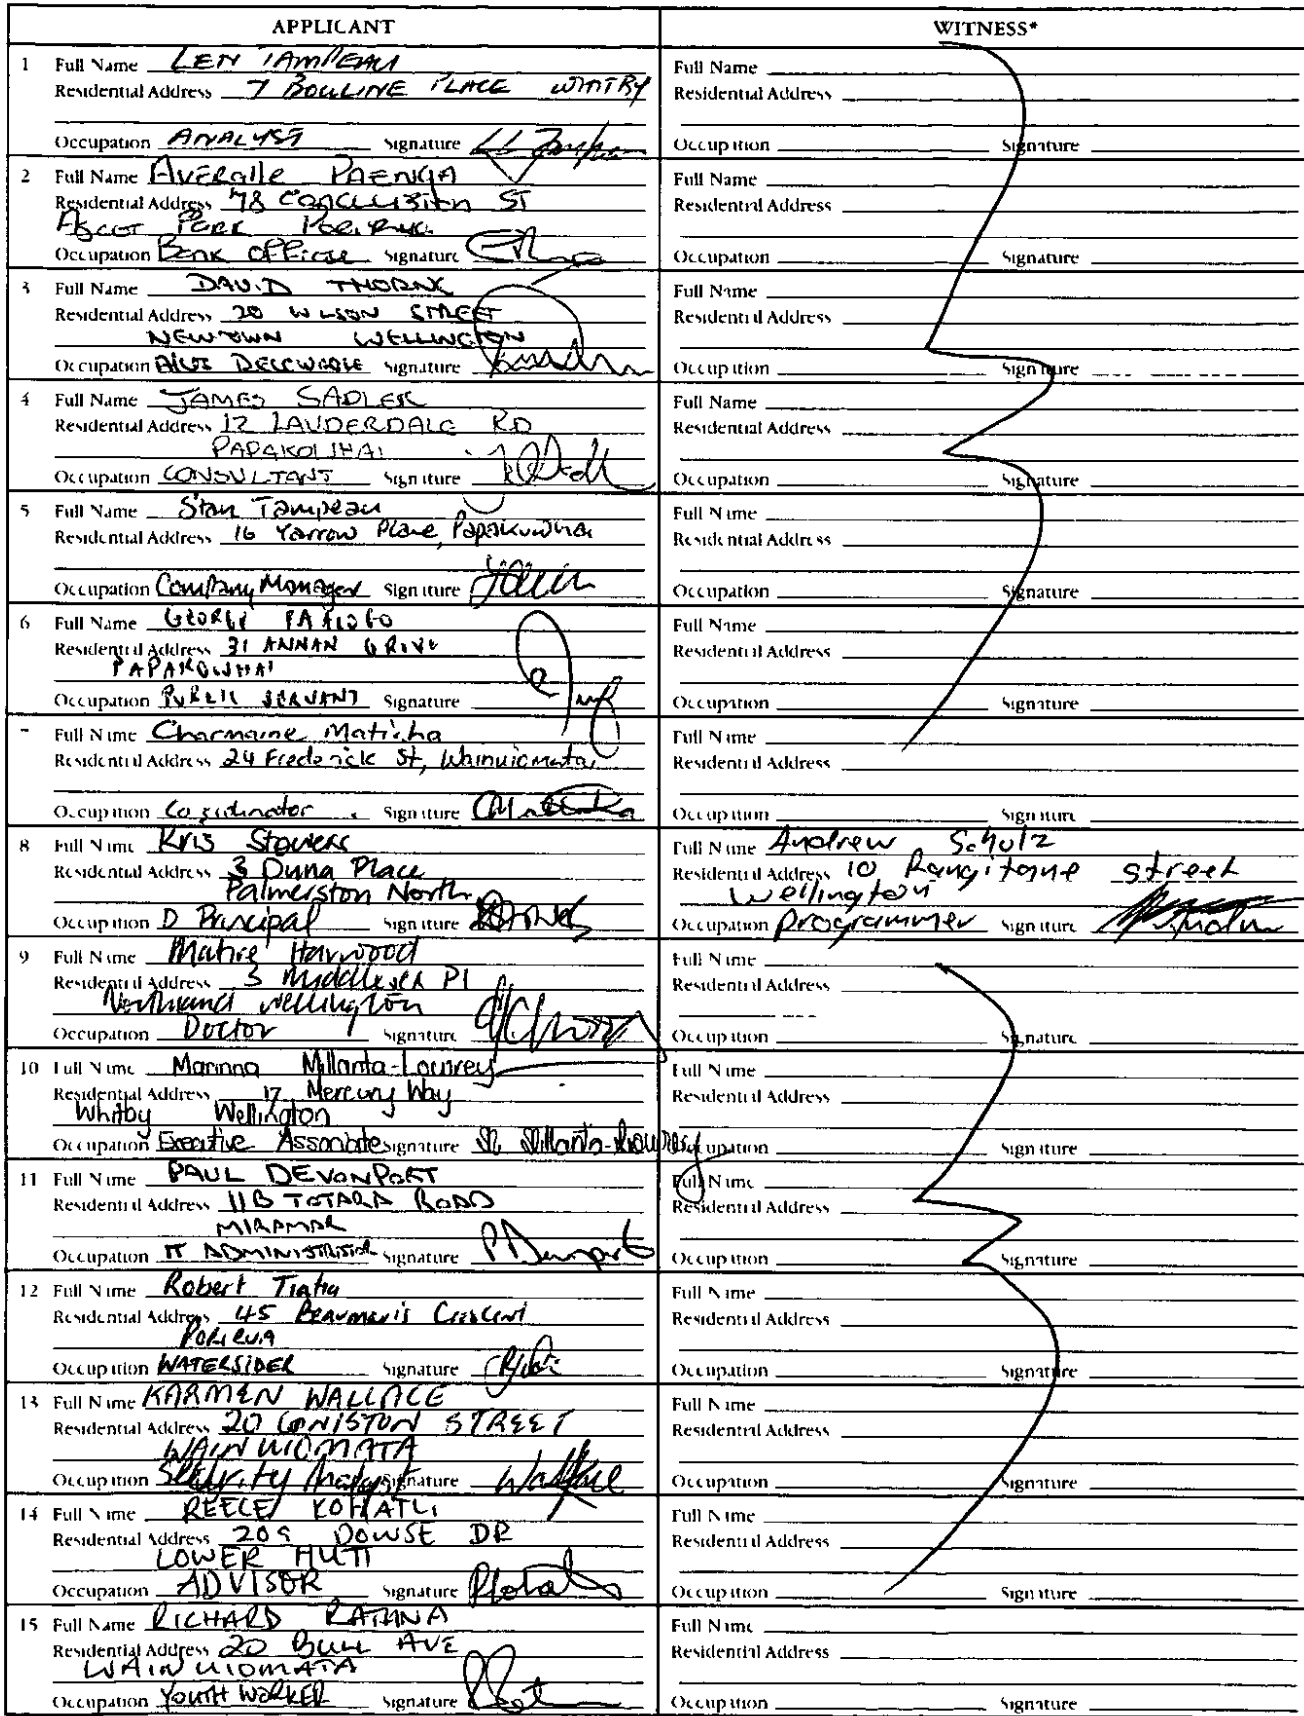 APPLICANT
WITNESS*
1 Full Name LEN TAMPEAU
Residential Address 7 BOWLINE PLACE WHITBY
Occupation ANALYST Signature
Full Name
Residential Address
Occupation Signature
2 Full Name Averaille PAENGA
Residential Address 78 Conclusion ST
Ascot Park Porirua
Occupation Bank Officer Signature
Full Name
Residential Address
Occupation Signature
3 Full Name DAVID THORNE
Residential Address 20 WILSON STREET
NEWTOWN WELLINGTON
Occupation Signature
Full Name
Residential Address
Occupation Signature
4 Full Name JAMES SADLER
Residential Address 12 LAUDERDALE RD
PAPAKOWHAI
Occupation CONSULTANT Signature
Full Name
Residential Address
Occupation Signature
5 Full Name Stan Tampeau
Residential Address 16 Yarrow Place, Papakowhai
Occupation Company Manager Signature
Full Name
Residential Address
Occupation Signature
6 Full Name GEORGE
Residential Address 31 ANNAN GROVE
PAPAKOWHAI
Occupation PUBLIC SERVANT Signature
Full Name
Residential Address
Occupation Signature
7 Full Name Charmaine
Residential Address 24 Frederick St, Wainuiomata
Occupation Co-ordinator Signature
Full Name
Residential Address
Occupation Signature
8 Full Name Kris Stowers
Residential Address 3 Duna Place
Palmerston North
Occupation D Principal Signature
Full Name Andrew Scholz
Residential Address 10 Rangitane street
Wellington
Occupation programmer Signature
9 Full Name Matire Harwood
Residential Address 3 Pl
Northland Wellington
Occupation Doctor Signature
Full Name
Residential Address
Occupation Signature
10 Full Name Marinna Millanta-Lowrey
Residential Address 17 Mercury Way
Whitby Wellington
Occupation Executive Associate Signature M Millanta-Lowrey
Full Name
Residential Address
Occupation Signature
11 Full Name PAUL DEVONPORT
Residential Address 11B TOTARA ROAD
MIRAMAR
Occupation IT ADMINISTRATOR Signature P Devonport
Full Name
Residential Address
Occupation Signature
12 Full Name Robert Tiatia
Residential Address 45 Beaumaris Crescent
Porirua
Occupation WATERSIDER Signature
Full Name
Residential Address
Occupation Signature
13 Full Name KARMEN WALLACE
Residential Address 20 CONISTON STREET
WAINUIOMATA
Occupation Security Analyst Signature Wallace
Full Name
Residential Address
Occupation Signature
14 Full Name REECE KOHATU
Residential Address 209 DOWSE DR
LOWER HUTT
Occupation ADVISOR Signature
Full Name
Residential Address
Occupation Signature
15 Full Name RICHARD RATANA
Residential Address 20 BULL AVE
WAINUIOMATA
Occupation YOUTH WORKER Signature
Full Name
Residential Address
Occupation Signature